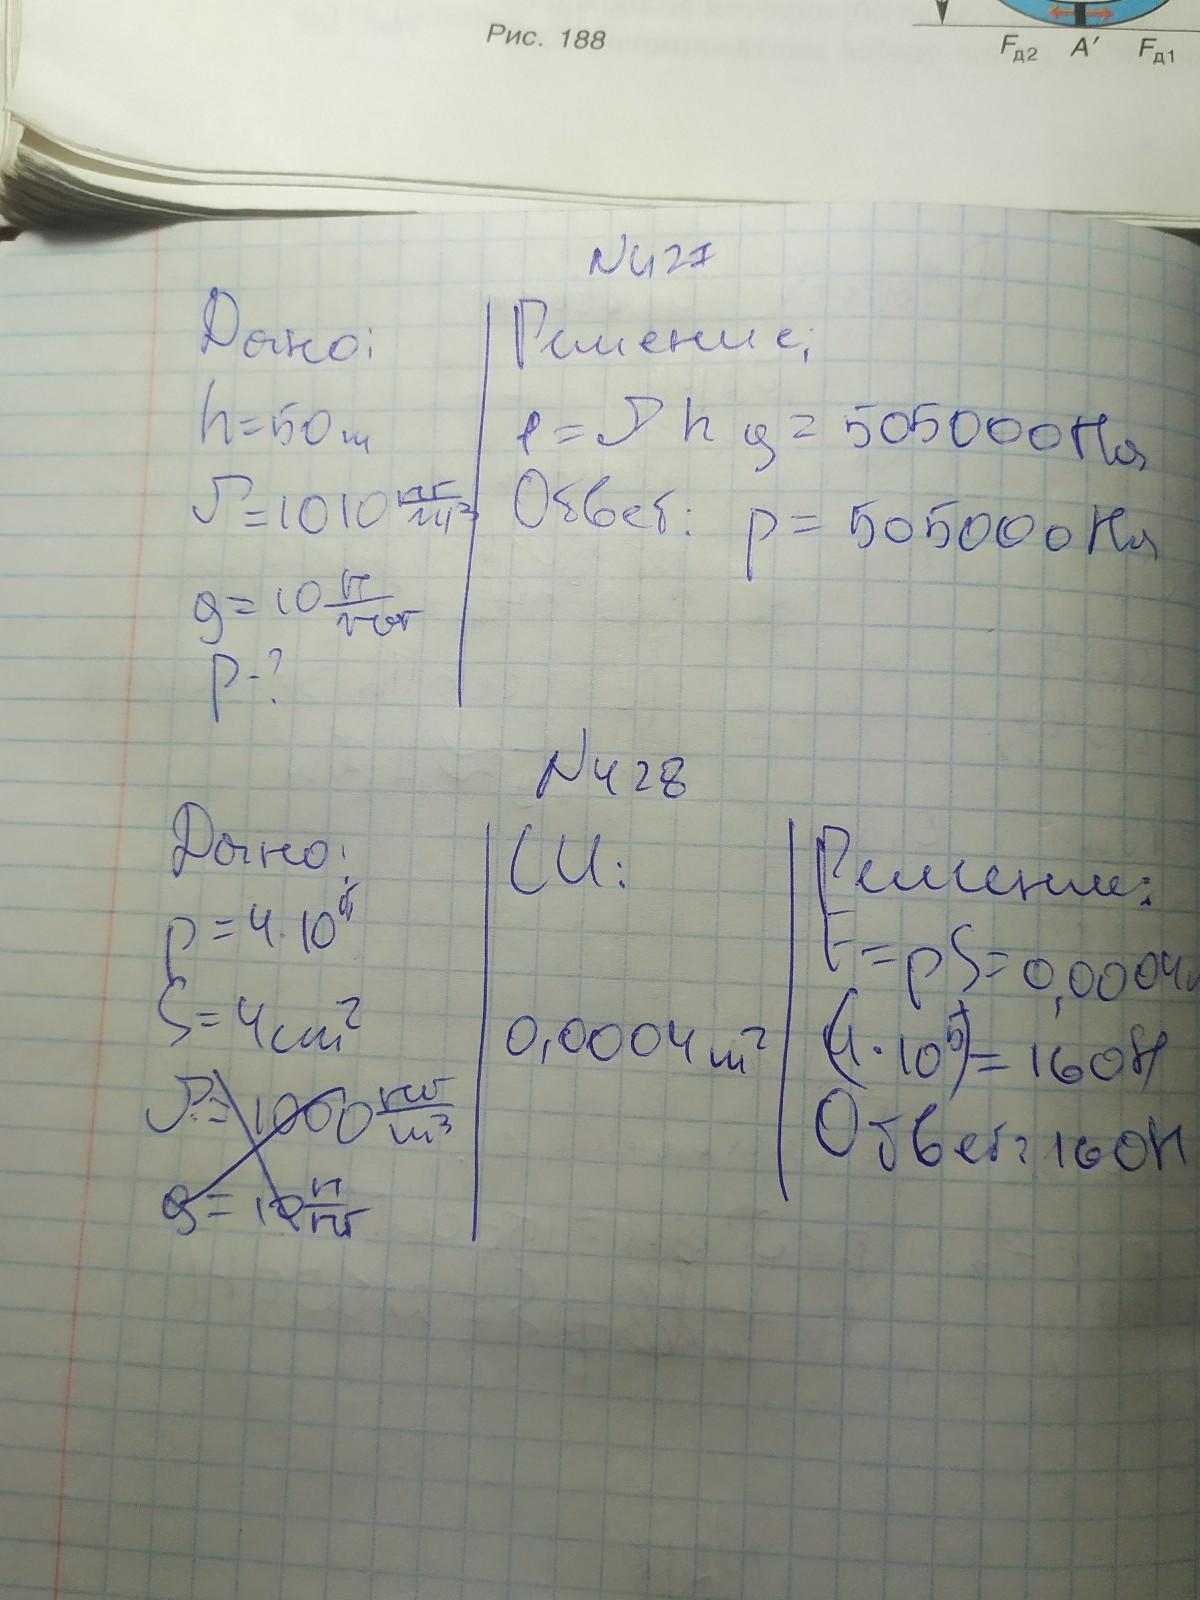 Рис. 188
Fд2 A′ Fд1
N427
Дано:
h=50м
ρ=1010 кг/м³
g=10 Н/кг
p-?
Решение:
p=ρhg=505000Па
Ответ: p=505000Па
N428
Дано:
p=4·10⁵
S=4см²
ρ=1000 кг/м³
g=10 Н/кг
СИ:
0,0004м²
Решение:
F=pS=0,0004м
(4·10⁵)=160Н
Ответ: 160Н